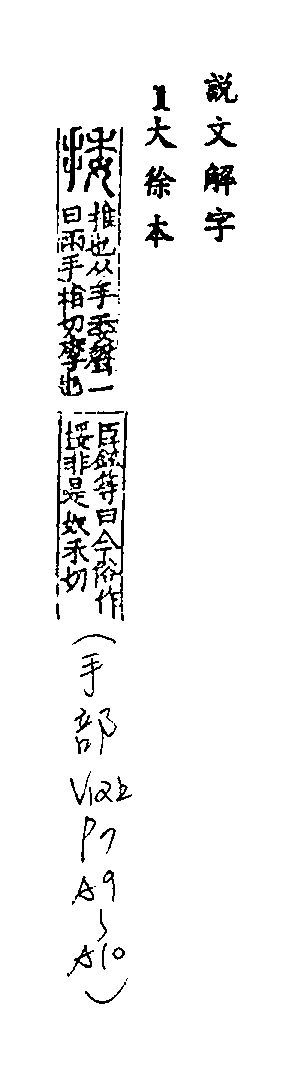 説文解字
1大徐本
捼
推也从手委聲一
曰兩手相切摩也
臣鉉等曰今俗作
挼非是奴禾切
(手部 V12上 P7 A9~A10)